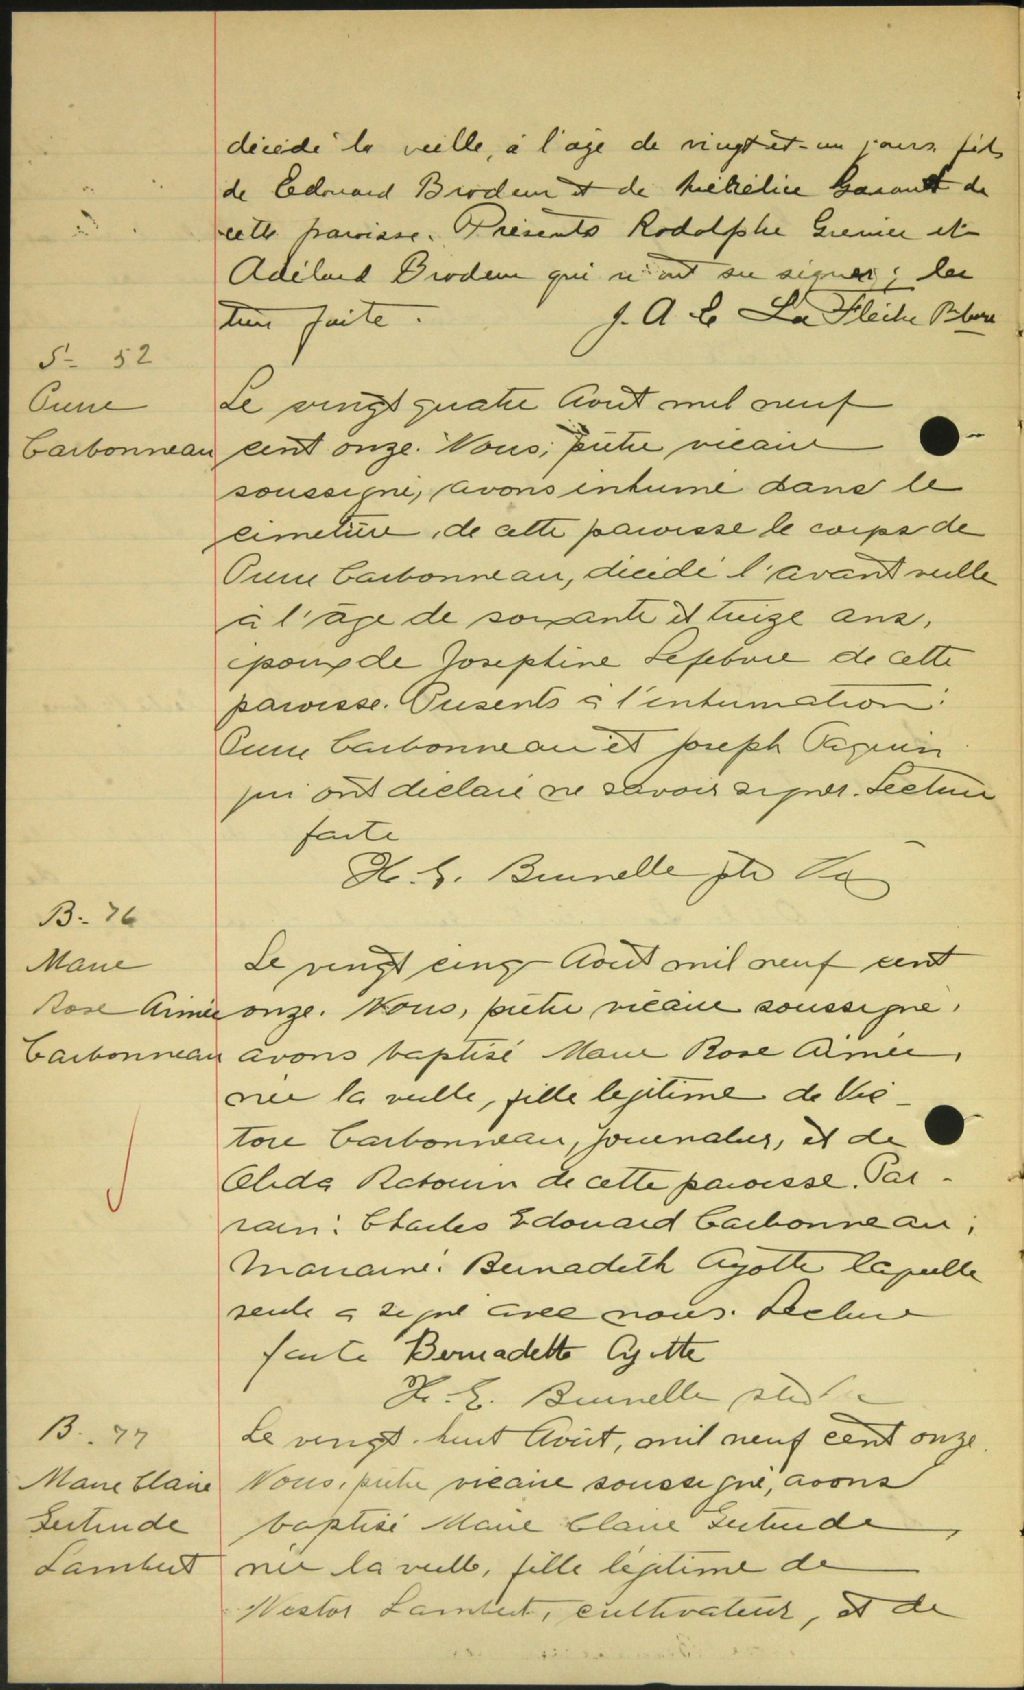 décédé la veille, à l'âge de vingt-et-un jours fils
de Edouard Brodeur et de Garant de
cette paroisse. Présents Rodolphe Grenier et
Adélard Brodeur qui n'ont su signer; lec
ture faite. J. A. E. La Flèche Ptre
S- 52
Pierre
Carbonneau
Le vingt quatre Août mil neuf
cent onze. Nous, prêtre vicaire
soussigné, avons inhumé dans le
cimetière, de cette paroisse le corps de
Pierre Carbonneau, décédé l'avant veille
à l'âge de soixante et treize ans,
époux de Josephine Lefebvre de cette
paroisse. Présents à l'inhumation:
Pierre Carbonneau et Joseph Paquin
qui ont déclaré ne savoir signer. Lecture
faite
H. E. Brunelle ptr Vic
B- 76
Marie
Rose Aimée
Carbonneau
Le vingt cinq Août mil neuf cent
onze. Nous, prêtre vicaire soussigné,
avons baptisé Marie Rose Aimée,
née la veille, fille légitime de Vic-
tore Carbonneau, journalier, et de
Olida Rabouin de cette paroisse. Par-
rain: Charles Edouard Carbonneau;
Marraine: Bernadeth Ayotte laquelle
seule a signé avec nous. Lecture
faite Bernadette Ayotte
H. E. Brunelle ptr Vic
B. 77
Marie Claire
Gertrude
Lambert
Le vingt-huit Août, mil neuf cent onze.
Nous, prêtre vicaire soussigné, avons
baptisé Marie Claire Gertrude,
née la veille, fille légitime de
Nestor Lambert, cultivateur, et de